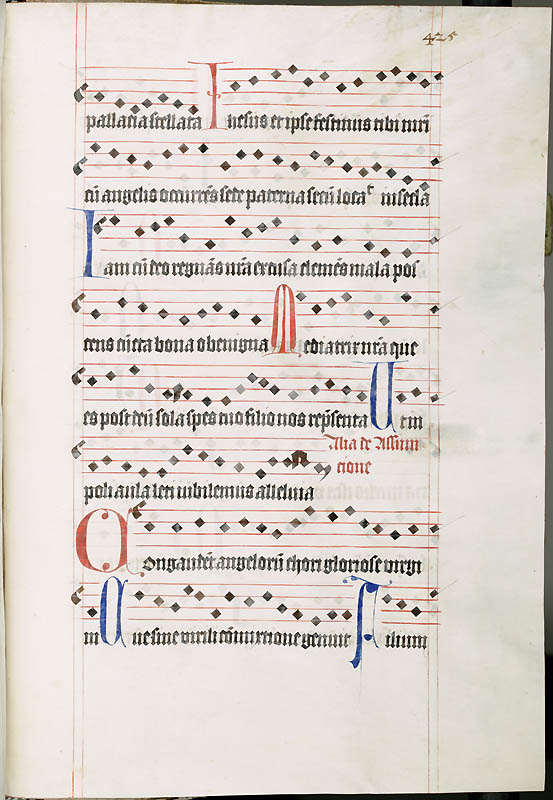 425
pallatia stellata Ihesus et ipse festinus tibi cum
cū angelis occurrēs sede paterna secū locat in secla
Iam cū deo regnās nr̄a excusa clemēs mala pos
cens cūcta bona o benigna Mediatrix nr̄a que
es post deū sola spes tuo filio nos repn̄senta Ut in
Alia de Assum
cione
poli aula leti iubilemus alleluia
Congaudēt angelorū chori gloriose virgi
ni Que sine virili cōmixtione genuit Filium